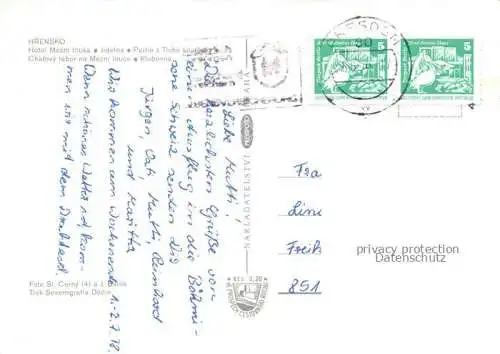 HŘENSKO
Hotel Mezní louka • Jídelna • Partie z Tiché soutěsky
Chatový tábor na Mezní louce • Klubovna
Foto St. Černý (4) a J.
Tisk Severografia Děčín
NAKLADATELSTVÍ PRAHA
Kčs 0,20
Liebe Mutti!
Die herzlichsten Grüße von
einem Ausflug in die Böhmi-
sche Schweiz senden Dir
Jürgen, Mutti, Reinhard
und Maritta
Wir kommen am Wochenende 1.-2.7.78.
Wenn schönes Wetter ist, kom-
men wir mit dem
5
5
Fra
Lini
Freib
851
privacy protection
Datenschutz